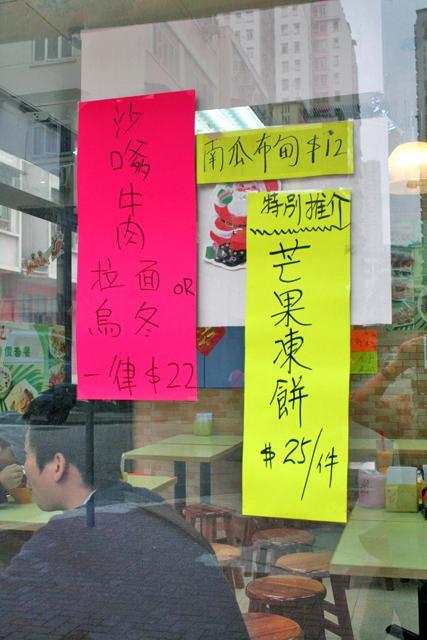 沙嗲牛肉
拉面 OR
烏冬
一律$22
南瓜布甸$12
特別推介
芒果凍餅
$25/件